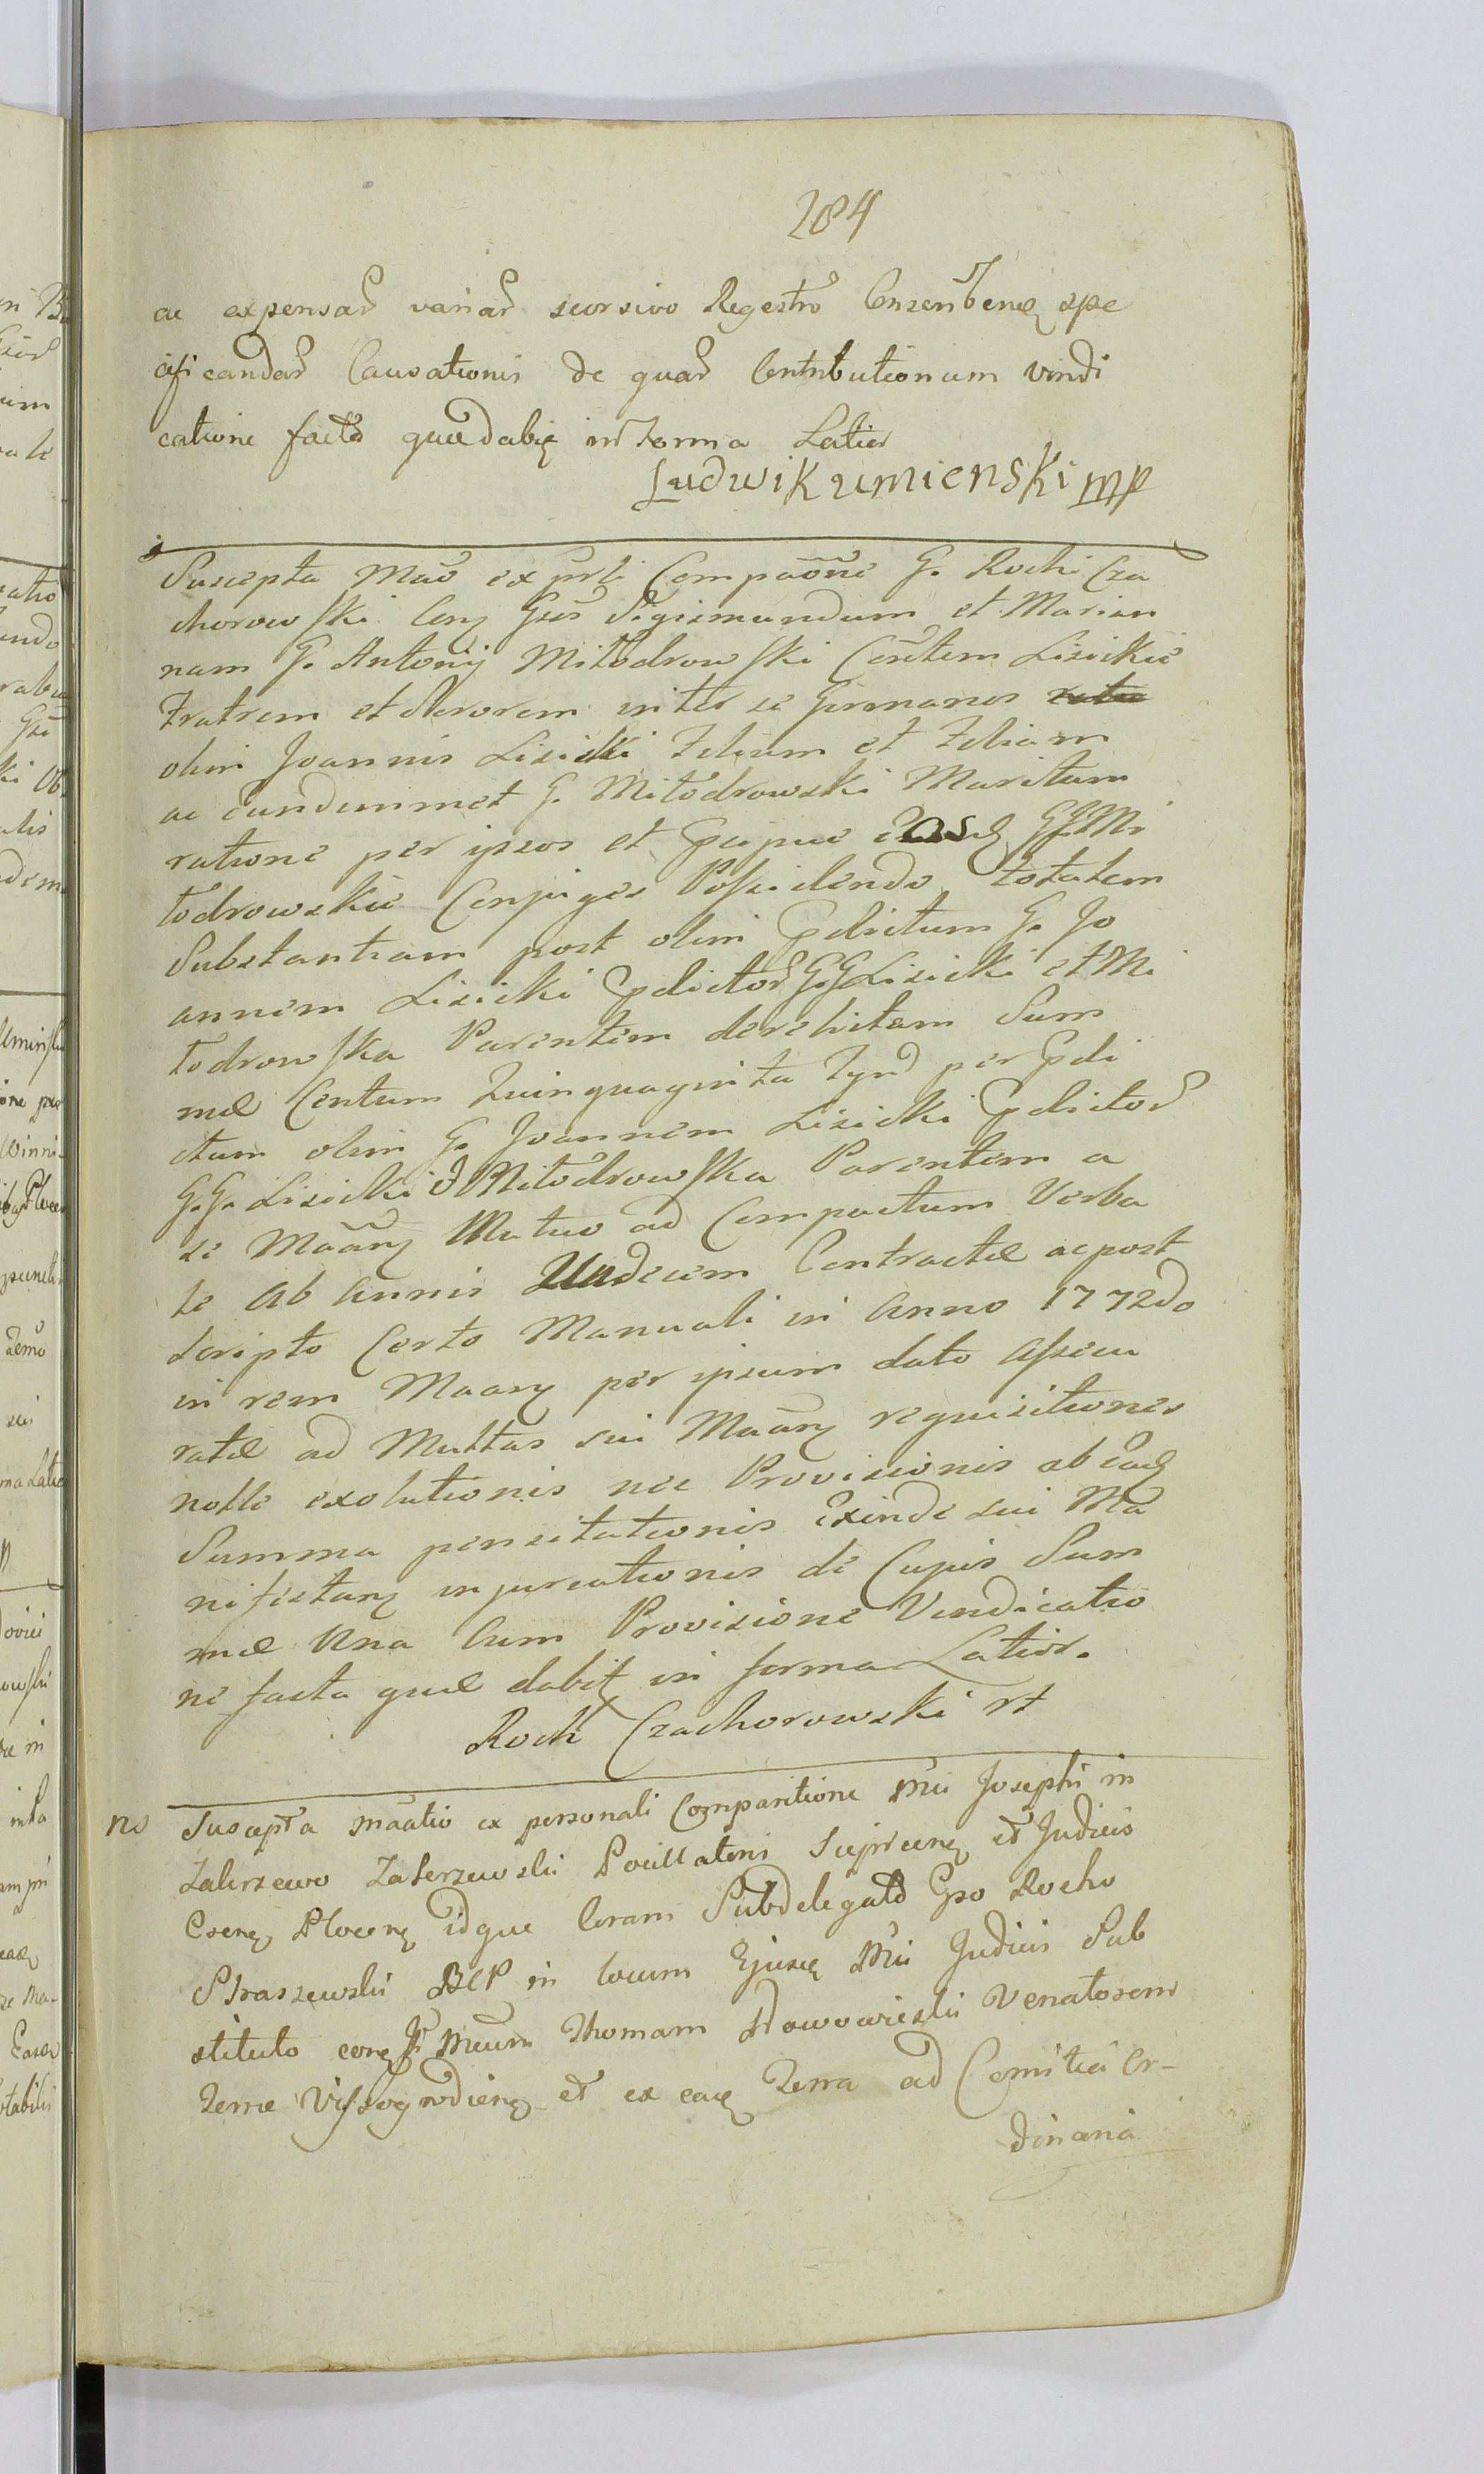 284
ac expensar variar seorsivo Regestro Conscribeng spe
cificandar Causationis de quar Contributionum vindi
catione facta quae dabit in forma Latior
Ludwik umienski mp
Suscepta Mäo ex prli Compaõne G. Rochi Cza
chorowski Con Gsos Sigismundum et Marian
nam G. Antonij Mitodrowski Consortem Lisickie
Fratrem et Sororem inter se Germanos
olim Joannis Lisicki Filium et Filiam
ac eundemmet G. Mitodrowski Maritum
ratione per ipsos et praecipue G.G. Mi
todrowskie Conjuges Possidendo totalem
Substantiam post olim pdictum G. Jo
annem Lisicki pdictor G.G. Lisicki et Mi
todrowska Parentem derelictam Sum
mae Centum Quinquaginta Tynf per pdi
ctum olim G. Joannem Lisicki pdictor
G.G. Lisicki & Mitodrowska Parentem a
se Maãn Mutuo ad Compactum Verba
le ab Annis Undecim Contractae ac post
Scripto Certo Manuali in Anno 1772do
in rem Maan per ipsum dato Assecu
ratae ad Multas sui Maan requisitiones
nolle exolutionis nec Provisionis ab ead
Summa pensitationis Exinde sui Ma
nifestan injuriationis de Cujus Sum
mae Una Cum Provisione Vindicatio
ne facta quae dabit in forma Latior.
Roch Czachorowski rt
ns Suscepta maãtio ex personali Comparitione Mci Josephi in
Zakrzewo Zakrzewski Pocillatoris Sierpcen et Judicis
Csen Plocen idque Coram Subdelegato Gso Rocho
Straszewski BCP in locum Ejusd Mci Judicis Sub
stituto con Mcum Thomam Nowowieski Venatorem
Terrae Vyssogrodien et ex ead Terra ad Comitia Or-
dinaria